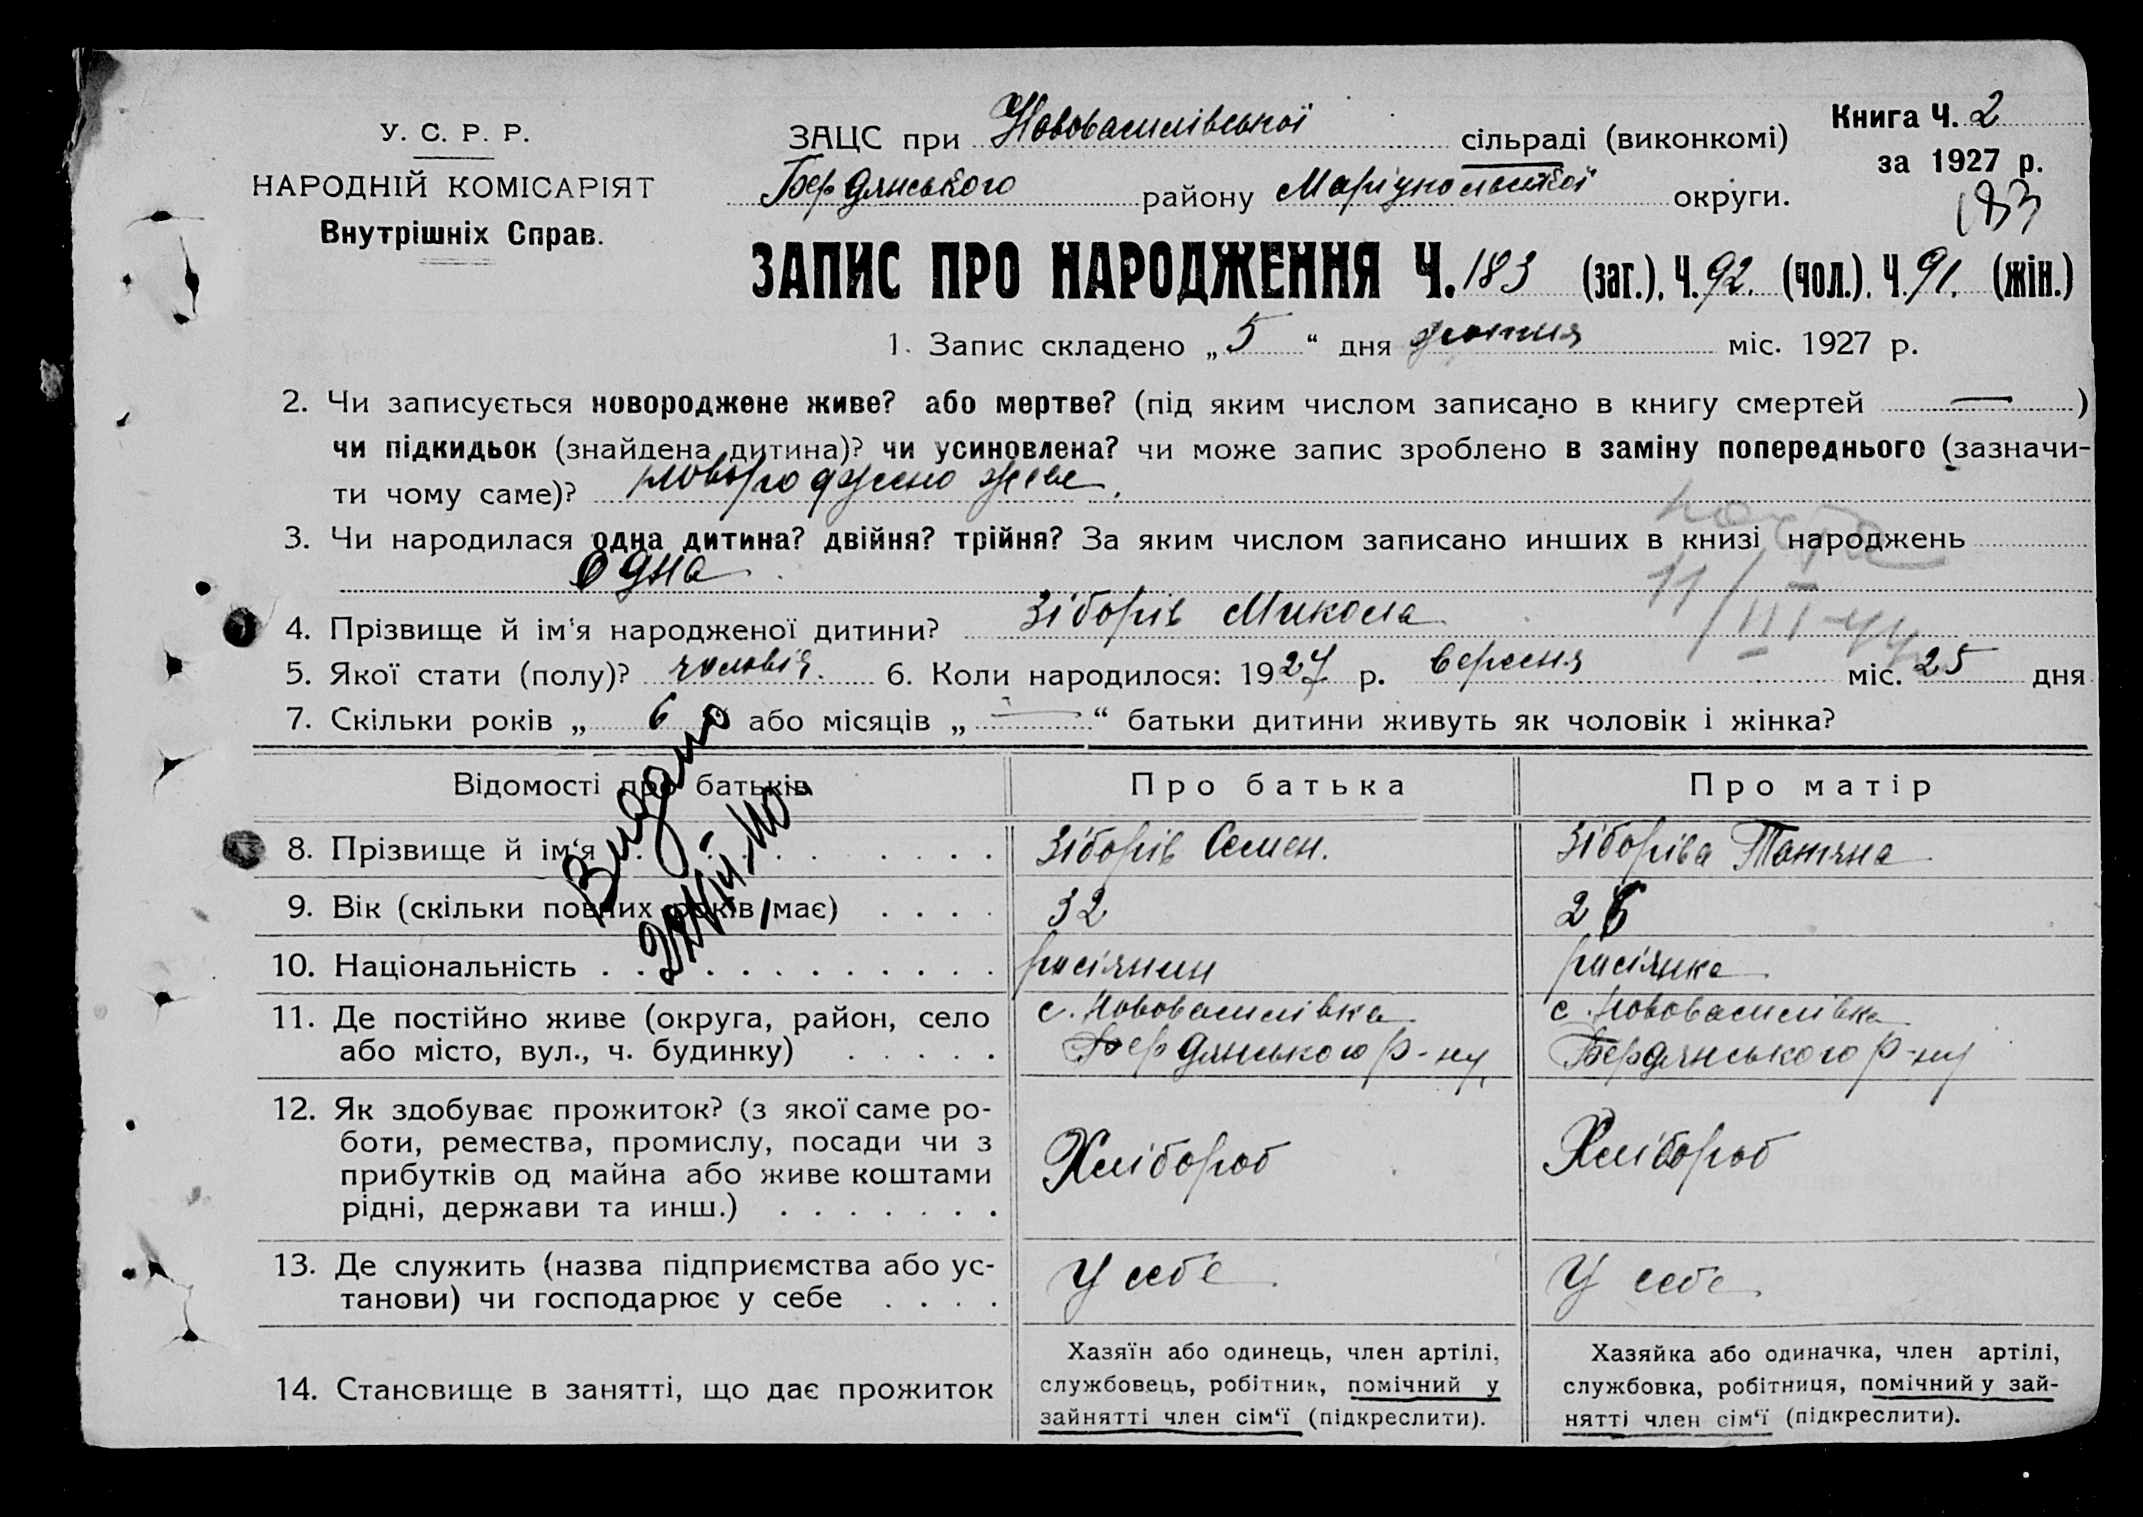 У. С. Р. Р.
НАРОДНІЙ КОМІСАРІЯТ
Внутрішніх Справ.
ЗАЦС при Нововасилівської сільраді (виконкомі)
Бердянського району Маріупольської округи.
Книга Ч. 2
за 1927 р.
183
ЗАПИС ПРО НАРОДЖЕННЯ Ч. 183 (заг.), Ч. 92. (чол.), Ч. 91. (жін.)
1. Запис складено „ 5 “ дня жовтня міс. 1927 р.
2. Чи записується новороджене живе? або мертве? (під яким числом записано в книгу смертей — )
чи підкидьок (знайдена дитина)? чи усиновлена? чи може запис зроблено в заміну попереднього (зазначи-
ти чому саме)? новороджено живе.
3. Чи народилася одна дитина? двійня? трійня? За яким числом записано инших в книзі народжень
одна
4. Прізвище й ім'я народженої дитини? Зіборів Микола
5. Якої стати (полу)? чоловіч. 6. Коли народилося: 1927 р. вересня міс. 25 дня
7. Скільки років „ 6 “ або місяців „ — “ батьки дитини живуть як чоловік і жінка?
Видано
Відомості про батьків
Про батька
Про матір
8. Прізвище й ім'я . . . . . . . . . .
Зіборів Семен.
Зіборіва Татяна
9. Вік (скільки повних років має) . . . .
32
26
10. Національність . . . . . . . . . . . .
росіянин
росіянка
11. Де постійно живе (округа, район, село
або місто, вул., ч. будинку) . . . . .
с. Нововасилівка
Бердянського р-ну
с. Нововасилівка
Бердянського р-ну
12. Як здобуває прожиток? (з якої саме ро-
боти, ремества, промислу, посади чи з
прибутків од майна або живе коштами
рідні, держави та инш.) . . . . . . .
Хлібороб
Хлібороб
13. Де служить (назва підприємства або ус-
танови) чи господарює у себе . . . .
У себе
У себе
14. Становище в занятті, що дає прожиток
Хазяїн або одинець, член артілі,
службовець, робітник, помічний у
зайнятті член сім'ї (підкреслити).
Хазяйка або одиначка, член артілі,
службовка, робітниця, помічний у зай-
нятті член сім'ї (підкреслити).